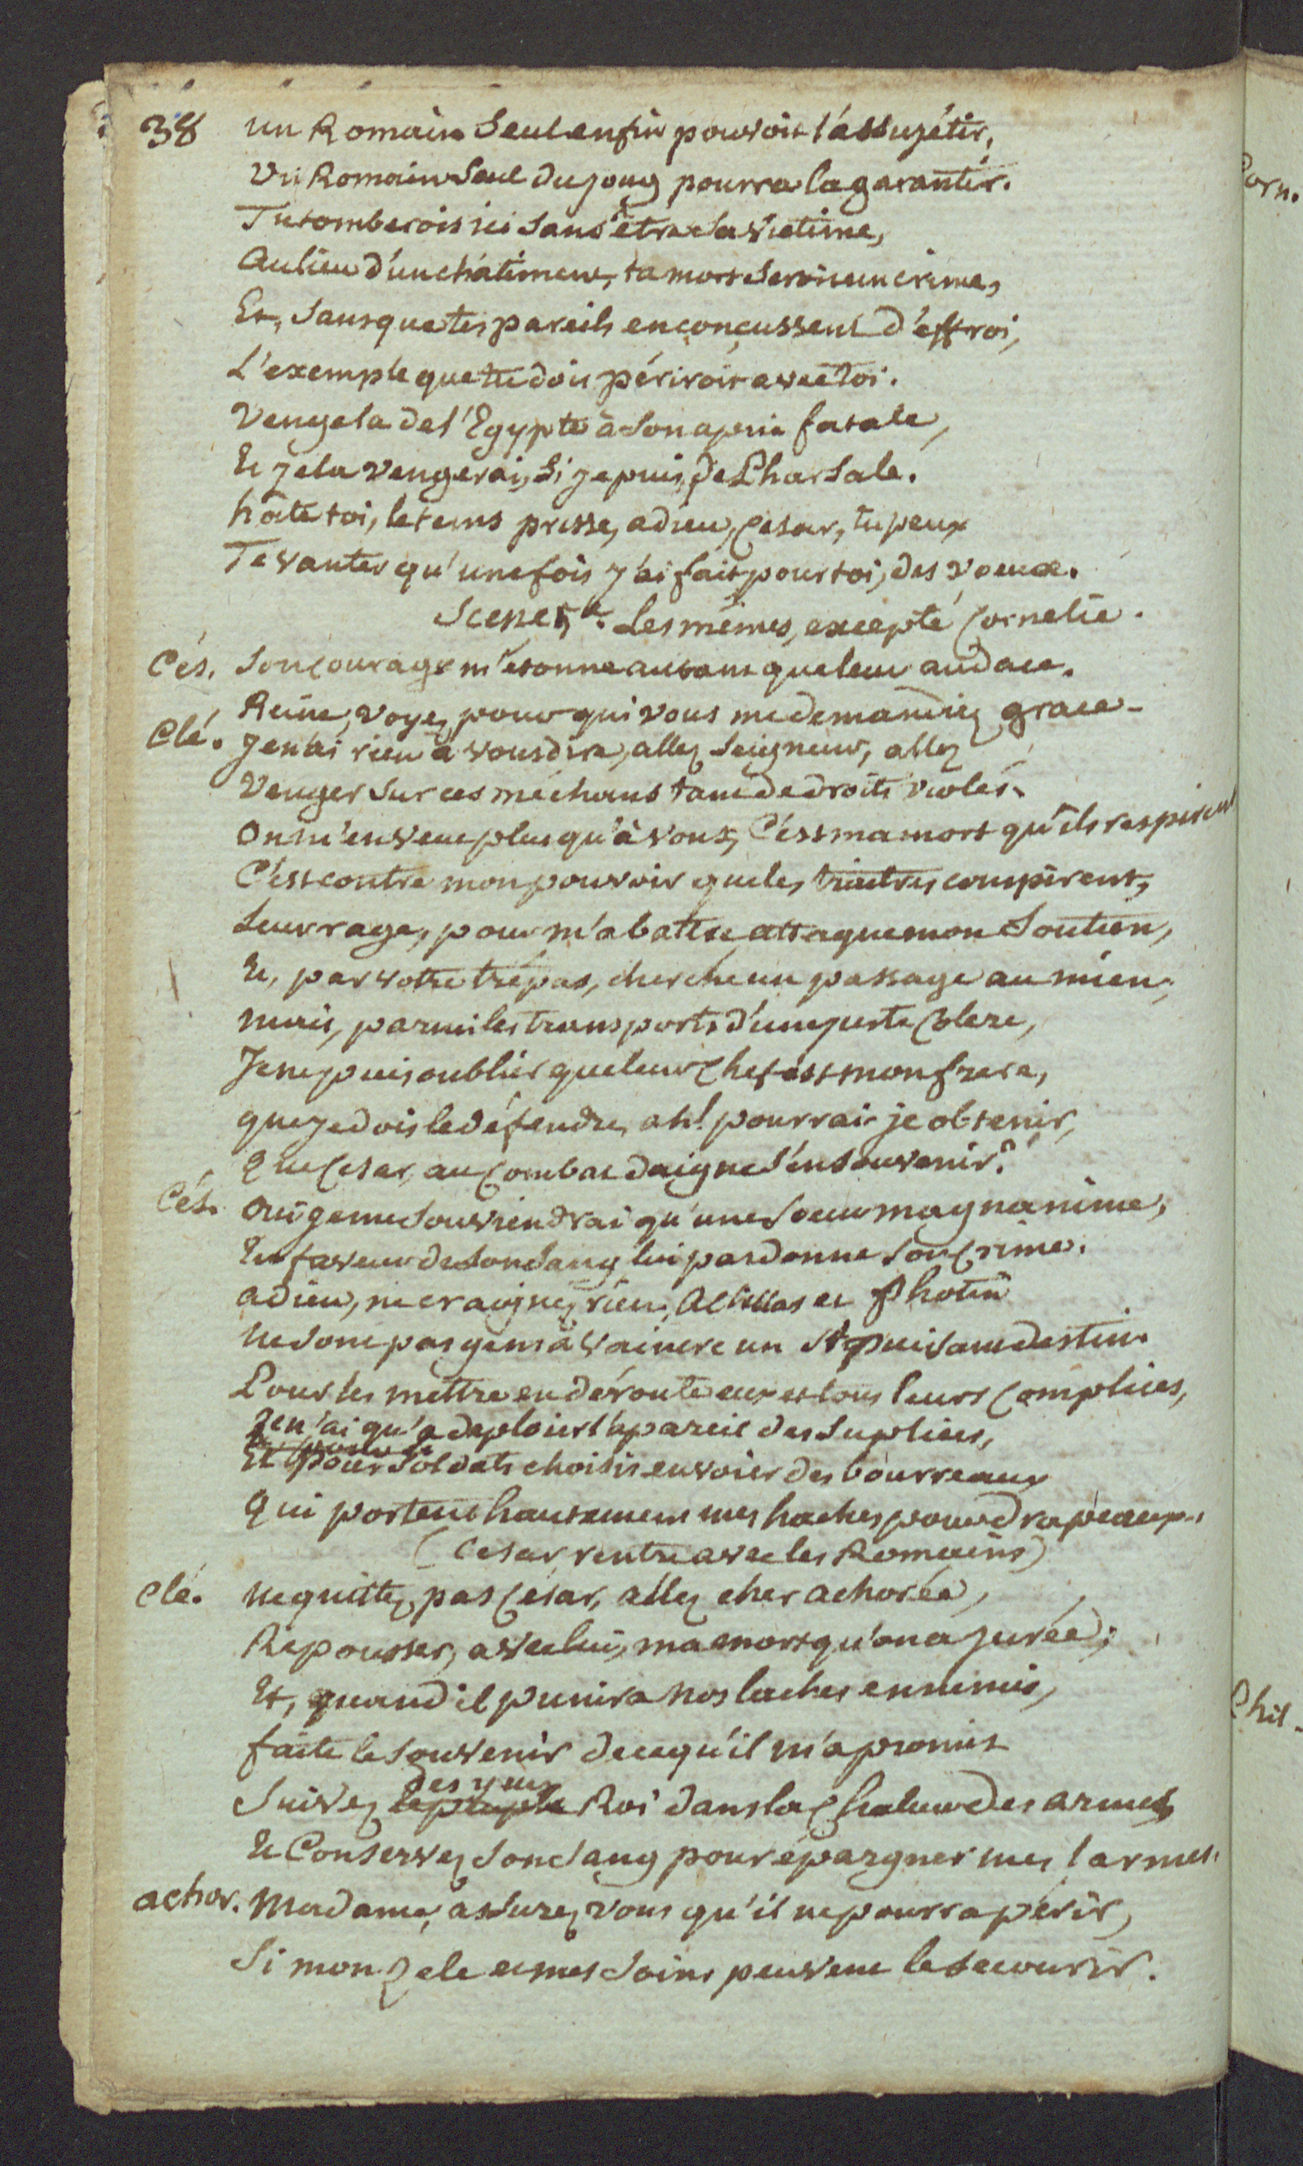 38 un Romain seul enfin pouvoit l'assujétir,
Un Romain seul du joug pourra la garantir.
Tu tomberois ici sans être sa victime,
Au lieu d'un châtiment, ta mort seroit un crime,
Et, sans que tes pareils en conçussent d'effroi,
L'exemple que tu dois périroit avec toi.
Venge la de l'Egypte à son apui fatale,
Et je la vengerai, si je puis, de Pharsale.
hâte toi, le tems presse, adieu, Cesar, tu peux
Te vanter qu'une fois j'ai fait pour toi, des voeux.
Scene 5e. Les mêmes, excepté Cornelie.
Cés. Son courage m'etonne autant que leur audace.
Reine, voyez pour qui vous me demandiez grace.
Clé. Je n'ai rien à vous dire, allez Seigneur, allez
Venger sur ces méchans tant de droits violés.
On m'en veut plus qu'à vous, C'est ma mort qu'ils respirent
C'est contre mon pouvoir que les traitres conspirent,
Leur rage, pour m'abattre attaque mon Soutien,
Et, par votre trépas, cherche un passage au mien,
mais, parmi les transports d'une juste Colere,
Je ne puis oublier que leur chef est mon frere,
que je dois le défendre, ah! pourrai-je obtenir,
Que Cesar, au Combat daigne s'en souvenir?
Cés. Oui je me souviendrai qu'une soeur magnanime,
En faveur de son sang lui pardonne son Crime.
adieu, ne craignez rien, Achillas et Photin
Ne sont pas gens à vaincre un si puissant destin.
Pour les mettre en déroute eux et tous leurs Complices,
Je n'ai qu'a deploier l'apareil des suplices,
Et pour soldats choisis envoier des bourreaux
Qui portent hautement mes haches pour drapeaux.
(Cesar rentre avec les Romains)
Clé. Ne quittez pas César, allez cher achorée,
Repousser, avec lui, ma mort qu'on a jurée;
Et, quand il punira nos laches ennemis,
faite le souvenir de ce qu'il m'a promis
des yeux
Suivez le peuple Roi dans la Chaleur des armes
Et Conservez son sang pour épargner mes larmes.
achor. Madame, assurez vous qu'il ne pourra périr,
Si mon Zele et mes soins peuvent le secourir.
Corn.
Phil.